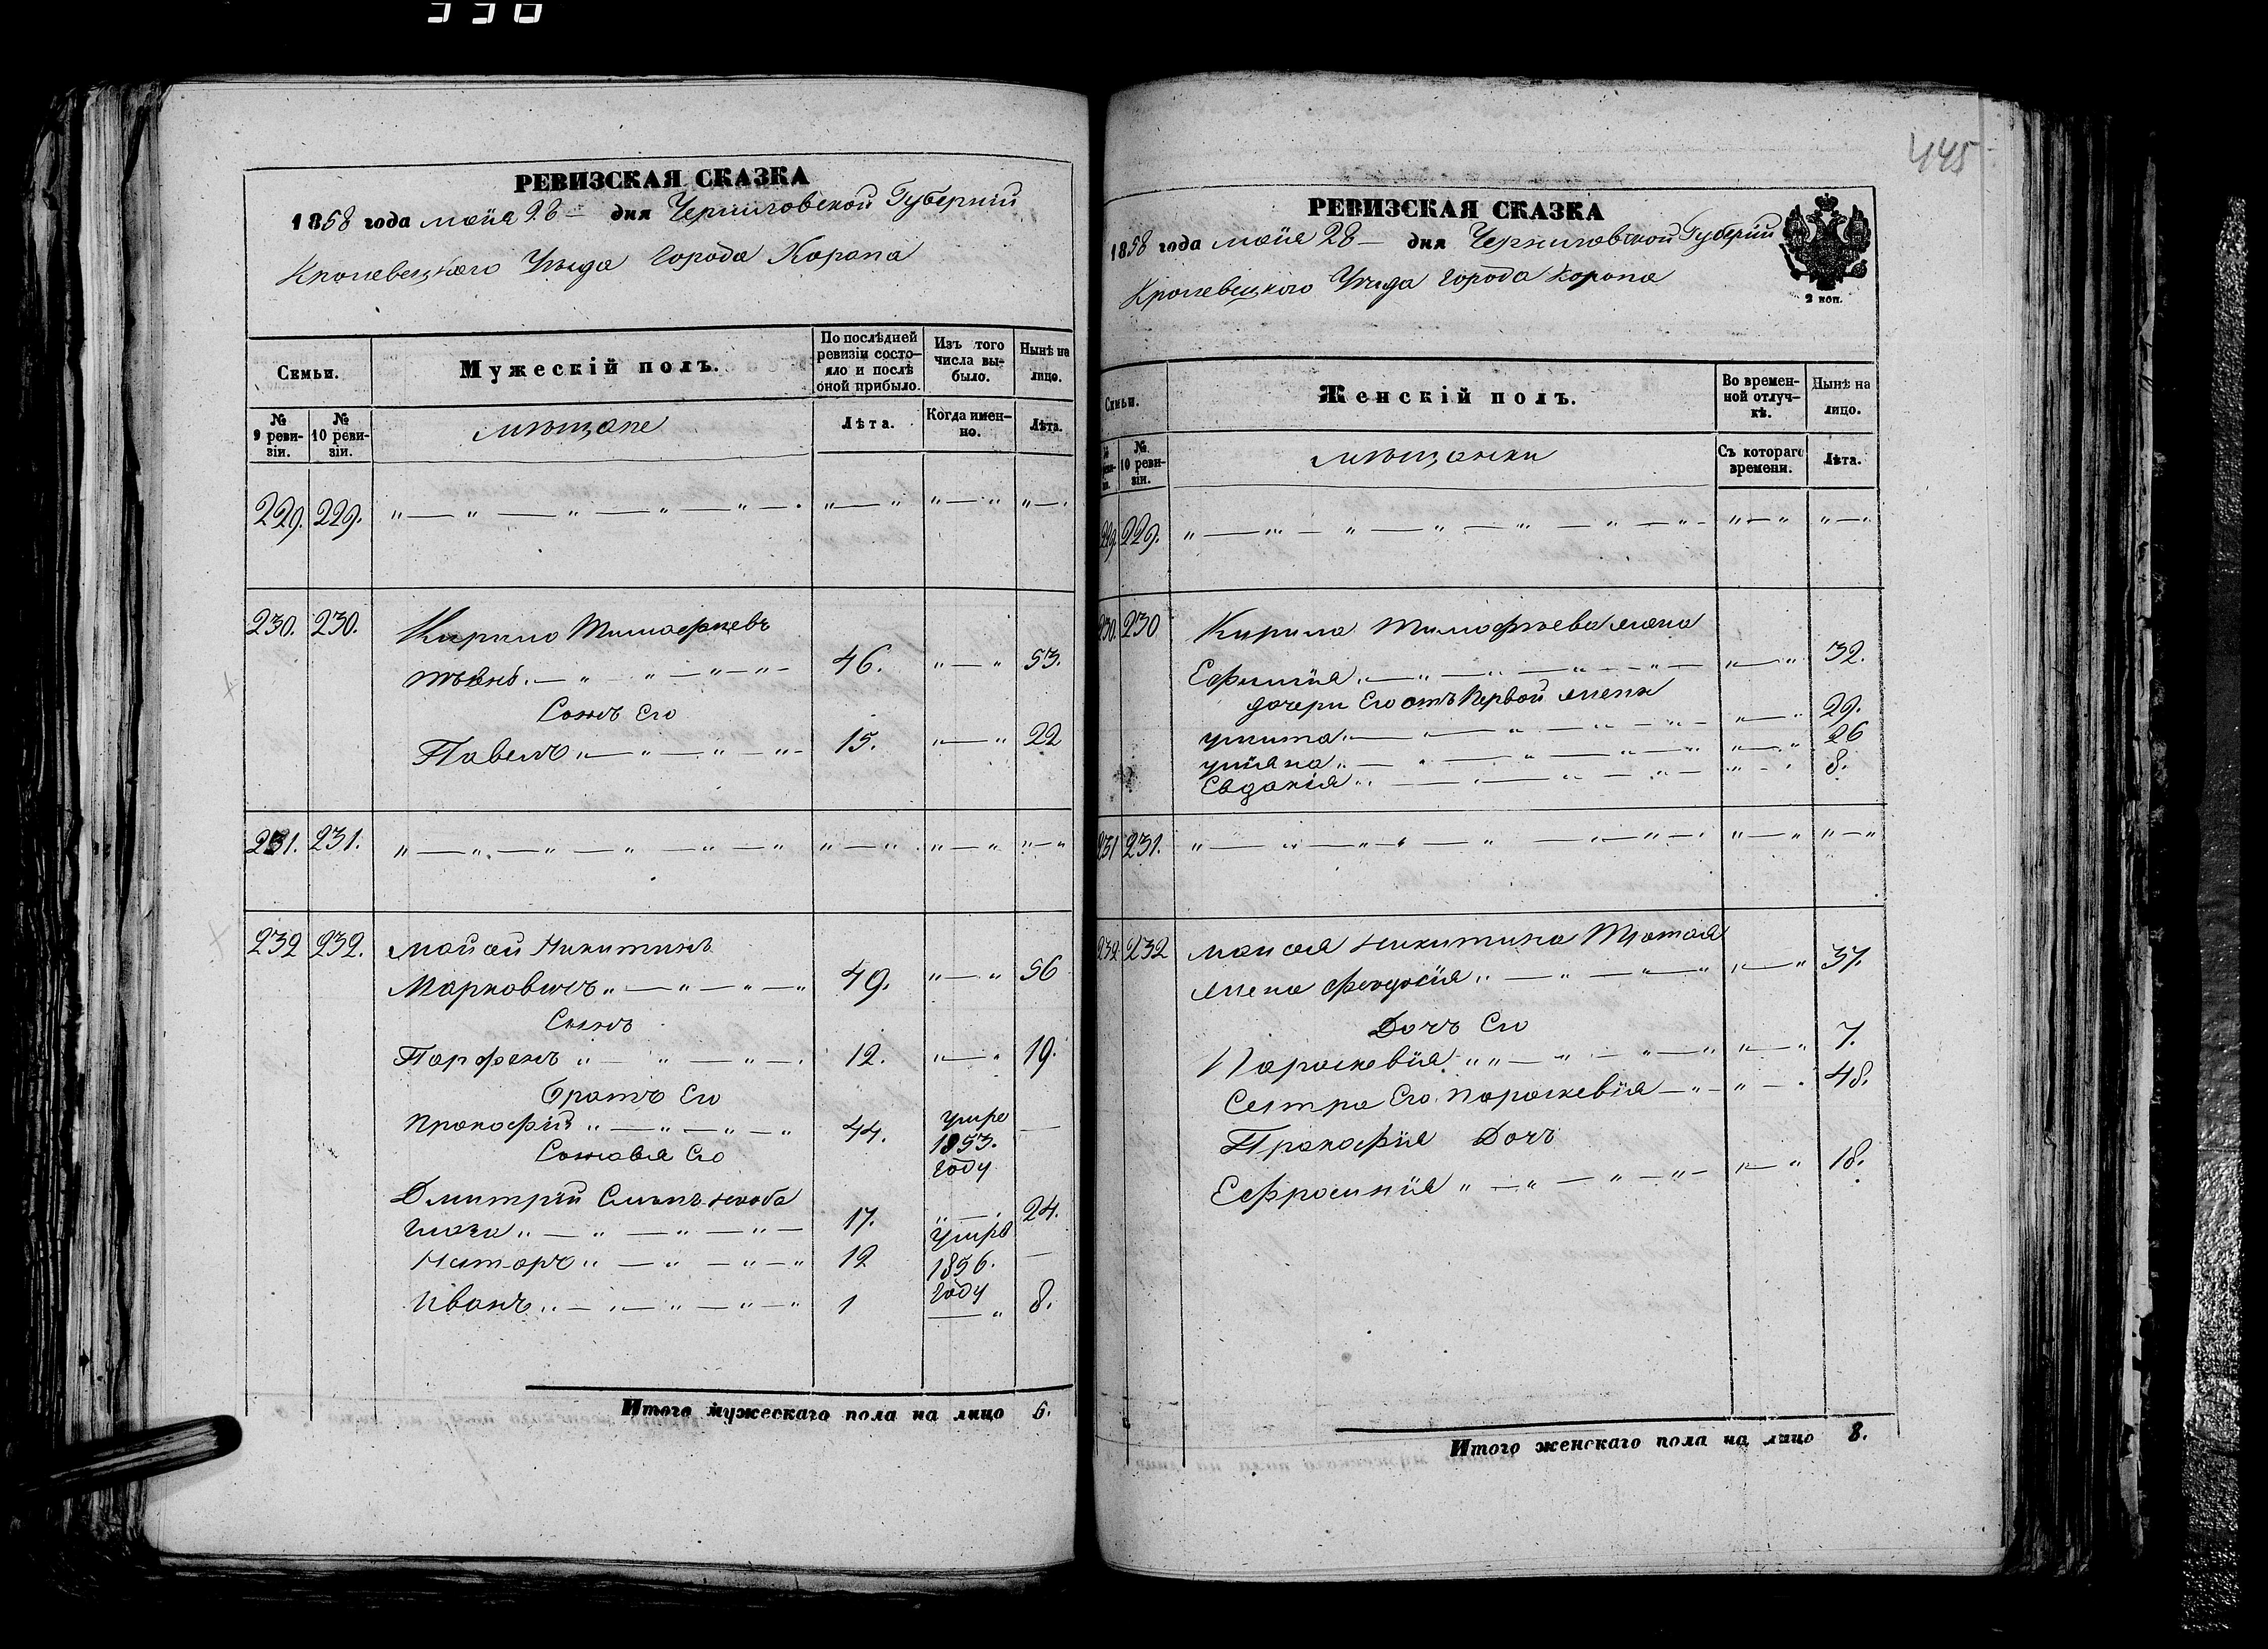 445
РЕВИЗСКАЯ СКАЗКА
1858 года мaiя 28 — дня Черниговской Губернiи
Кролевецкаго Уѣзда города Коропа
Семьи.
Мужескiй полъ.
По послѣдней ревизiи состо-
яло и послѣ оной прибыло.
Изъ того числа вы-
было.
Нынѣ на лицо.
№ 9 реви-
зiи.
№ 10 реви-
зiи.
мѣщане
Лѣта.
Когда имен-
но.
Лѣта.
229. 229.
230. 230. Кирило Тимофѣевъ
46. 53.
Сынъ Его
Павелъ 15. 22
231. 231.
232 232. Мойсей Никитинъ
Марковичъ 49. 56
Сынъ
Парфенъ 12. 19.
Братъ Его
Прокофiй 44. умре 1853. году —
Сыновья Его
Дмитрiй
17. 24.
Несторъ 12 умре 1856. году —
Иванъ 1 8.
Итого мужескаго пола на лицо 6.
РЕВИЗСКАЯ СКАЗКА
1858 года мaiя 28 — дня Черниговской Губернiи
Кролевецкого Уѣзда города Коропа
2 коп.
Семьи.
Женскiй полъ.
Во времен-
ной отлуч-
кѣ.
Нынѣ на лицо.
№ 10 реви-
зiи.
мѣщанки
Съ котораго времени.
Лѣта.
229 229.
230. 230 Кирила Тимофѣева жена
Ефимiя 32.
дочери Его отъ Первой жены
улита 29.
улiяна 26
Евдокiя 8.
231 231.
232 232 Мойсея Никитина
жена Феодосiя 37.
Дочь Его
Параскевiя 7.
Сестра Его Параскевiя 48.
Прокофiя Дочь
Ефросинiя 18.
Итого женскаго пола на лицо 8.